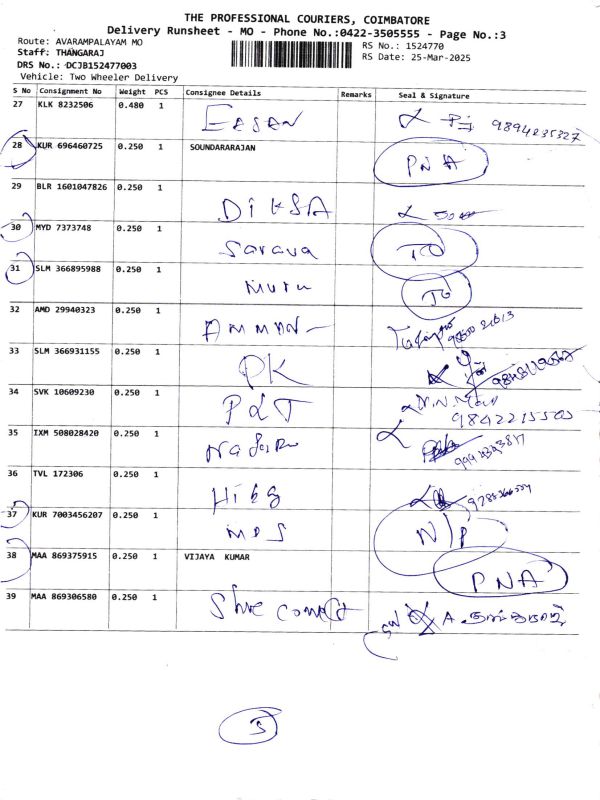 THE PROFESSIONAL COURIERS, COIMBATORE
Delivery Runsheet - MO - Phone No.:0422-3505555 - Page No.:3
Route: AVARAMPALAYAM MO
RS No.: 1524770
Staff: THANGARAJ
RS Date: 25-Mar-2025
DRS No.: DCJB152477003
Vehicle: Two Wheeler Delivery
S No Consignment No Weight PCS Consignee Details Remarks Seal & Signature
27 KLK 8232506 0.480 1 EASAN
28 KUR 696460725 0.250 1 SOUNDARARAJAN PNA
29 BLR 1601047826 0.250 1 DIKSA
30 MYD 7373748 0.250 1 Sarava TO
31 SLM 366895988 0.250 1 Muru TO
32 AMD 29940323 0.250 1 AMMAN
33 SLM 366931155 0.250 1 PK
34 SVK 10609230 0.250 1 P&T
35 IXM 508028420 0.250 1
36 TVL 172306 0.250 1
37 KUR 7003456207 0.250 1 MDS N/P
38 MAA 869375915 0.250 1 VIJAYA KUMAR PNA
39 MAA 869306580 0.250 1 A.
5